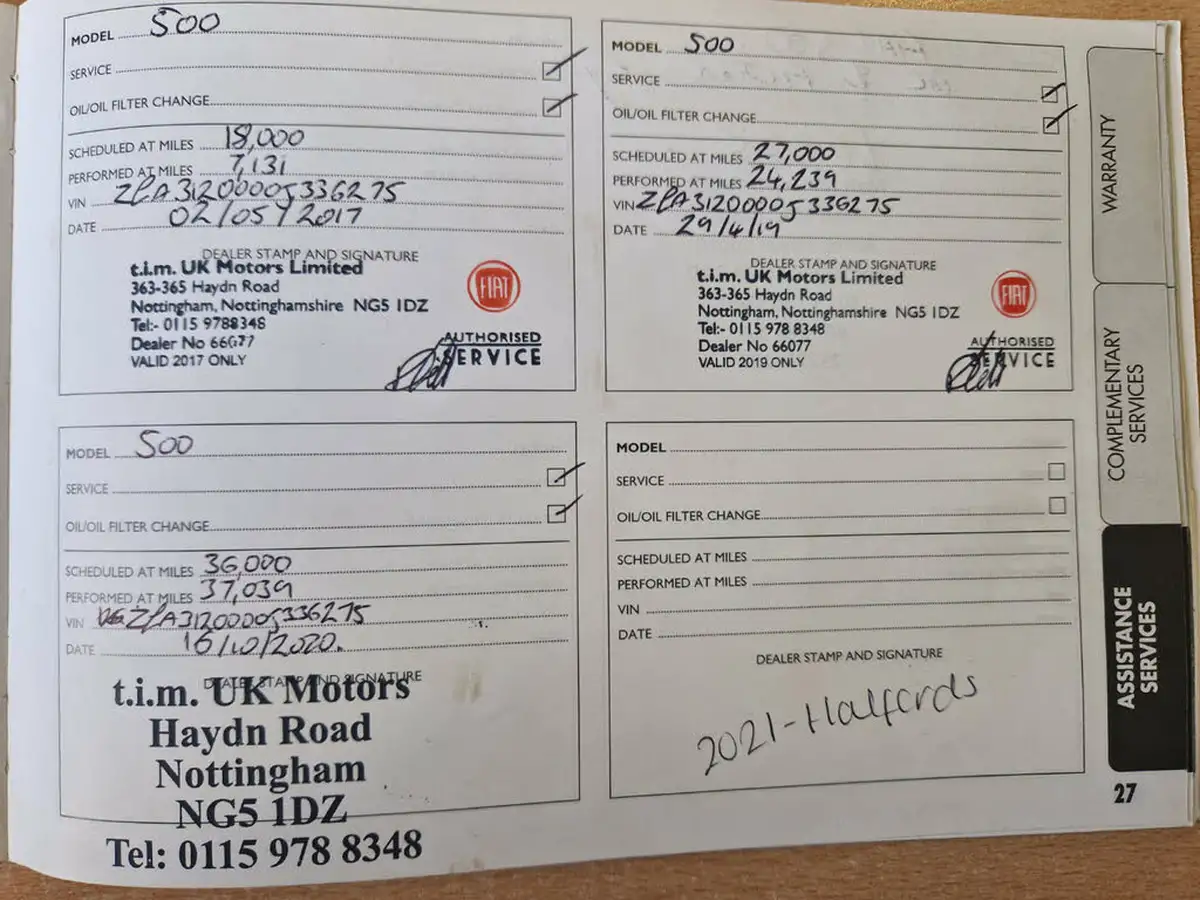 MODEL 500
SERVICE
OIL/OIL FILTER CHANGE
SCHEDULED AT MILES 18,000
PERFORMED AT MILES 7,131
VIN ZFA3120000J336275
DATE 02/05/2017
DEALER STAMP AND SIGNATURE
t.i.m. UK Motors Limited
363-365 Haydn Road
Nottingham, Nottinghamshire NG5 1DZ
Tel:- 0115 9788348
Dealer No 66077
VALID 2017 ONLY
FIAT
AUTHORISED
SERVICE
MODEL 500
SERVICE
OIL/OIL FILTER CHANGE
SCHEDULED AT MILES 27,000
PERFORMED AT MILES 24,239
VIN ZFA3120000J336275
DATE 29/4/19
DEALER STAMP AND SIGNATURE
t.i.m. UK Motors Limited
363-365 Haydn Road
Nottingham, Nottinghamshire NG5 1DZ
Tel:- 0115 978 8348
Dealer No 66077
VALID 2019 ONLY
FIAT
AUTHORISED
SERVICE
MODEL 500
SERVICE
OIL/OIL FILTER CHANGE
SCHEDULED AT MILES 36,000
PERFORMED AT MILES 37,039
VIN ZFA3120000J336275
DATE 16/10/2020.
DEALER STAMP AND SIGNATURE
t.i.m. UK Motors
Haydn Road
Nottingham
NG5 1DZ
Tel: 0115 978 8348
MODEL
SERVICE
OIL/OIL FILTER CHANGE
SCHEDULED AT MILES
PERFORMED AT MILES
VIN
DATE
DEALER STAMP AND SIGNATURE
2021-Halfords
WARRANTY
COMPLEMENTARY
SERVICES
ASSISTANCE
SERVICES
27